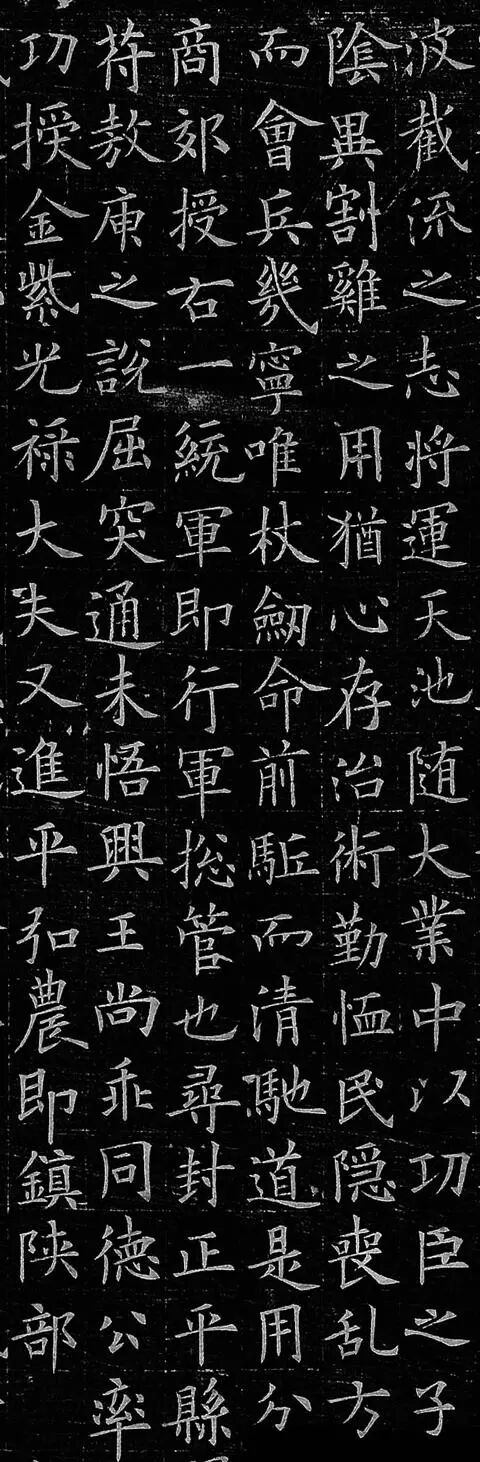 波截流之志将運天池随大業中以功臣之子
陰異割雞之用猶心存治術勤恤民隠喪乱方
而會兵幾寧唯杖劒命前駈而清馳道是用分
商郊授右一統軍即行軍捴管也尋封正平縣
敖庾之說屈突通未悟興王尚乖同德公率
功授金紫光禄大夫又進平弘農即鎮陝部